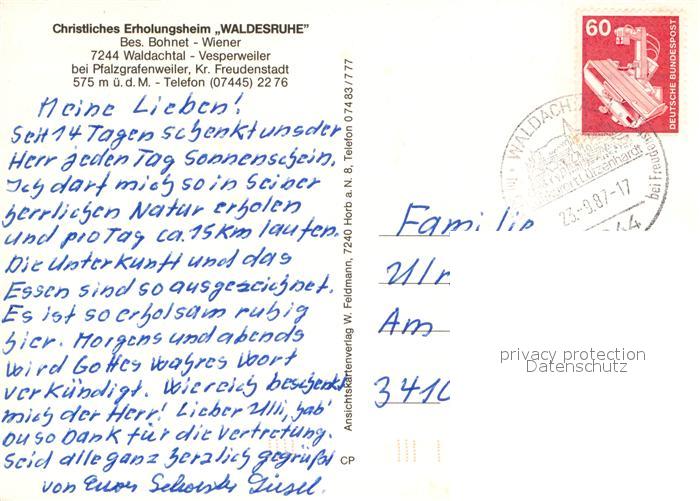 Christliches Erholungsheim „WALDESRUHE"
Bes. Bohnet - Wiener
7244 Waldachtal - Vesperweiler
bei Pfalzgrafenweiler, Kr. Freudenstadt
575 m ü.d.M. - Telefon (07445) 22 76
Meine Lieben!
Seit 14 Tagen schenkt uns der
Herr jeden Tag Sonnenschein.
Ich darf mich so in Seiner
herrlichen Natur erholen
und pro Tag ca. 15 km laufen.
Die Unterkunft und das
Essen sind so ausgezeichnet.
Es ist so erholsam ruhig
hier. Morgens und abends
wird Gottes wahres Wort
verkündigt. Wie reich beschenkt
mich der Herr! Lieber Ulli, hab'
Du so Dank für die Vertretung.
Seid alle ganz herzlich gegrüßt
von Eurer Schwester Gisel.
CP
Ansichtskartenverlag W. Feldmann, 7240 Horb a. N. 8, Telefon 0 74 83 / 7 77
60
DEUTSCHE BUNDESPOST
WALDACH
Lützenhardt
23.-9.87-17
bei Freudenst
44
Familie
Ulr
Am
3410
privacy protection
Datenschutz